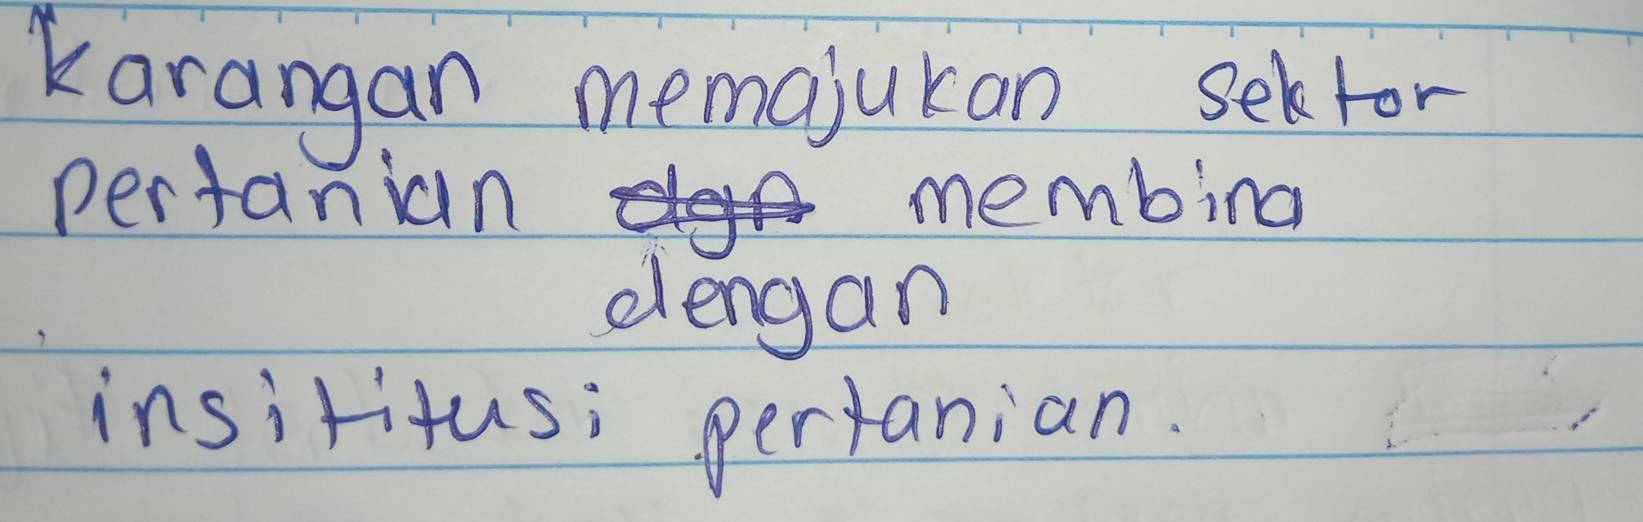 karangan memajukan sektor
pertanian dgn membina
dengan
insititusi pertanian.